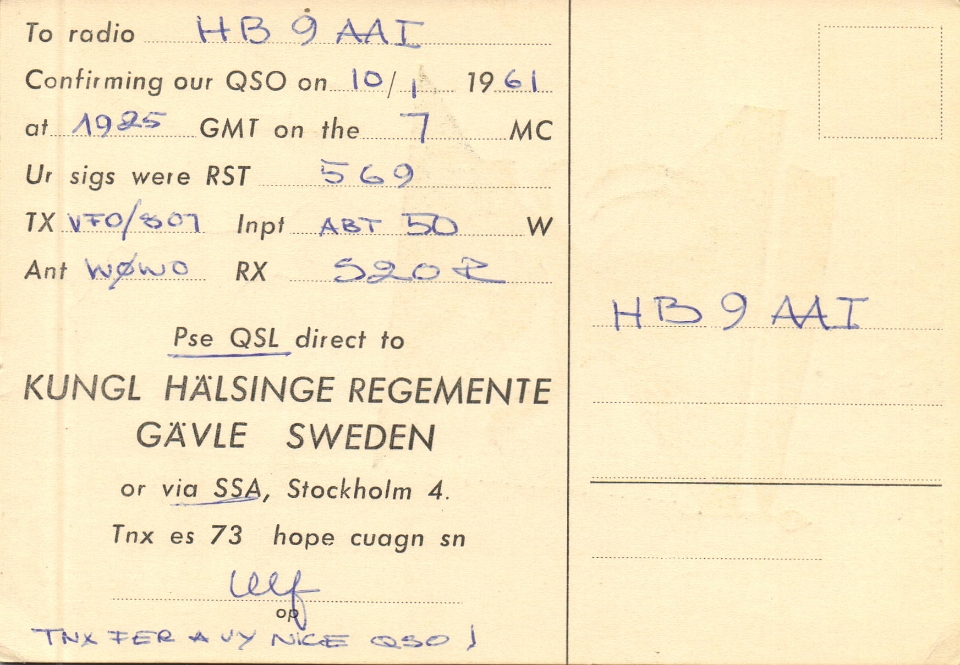 To radio HB 9 AAI
Confirming our QSO on 10/1 1961
at 1925 GMT on the 7 MC
Ur sigs were RST 569
TX VFO/807 Inpt ABT 50 W
Ant WØWO RX S20R
Pse QSL direct to
KUNGL HÄLSINGE REGEMENTE
GÄVLE SWEDEN
or via SSA, Stockholm 4.
Tnx es 73 hope cuagn sn
Ulf
op
TNX FER A VY NICE QSO !
HB 9 AAI